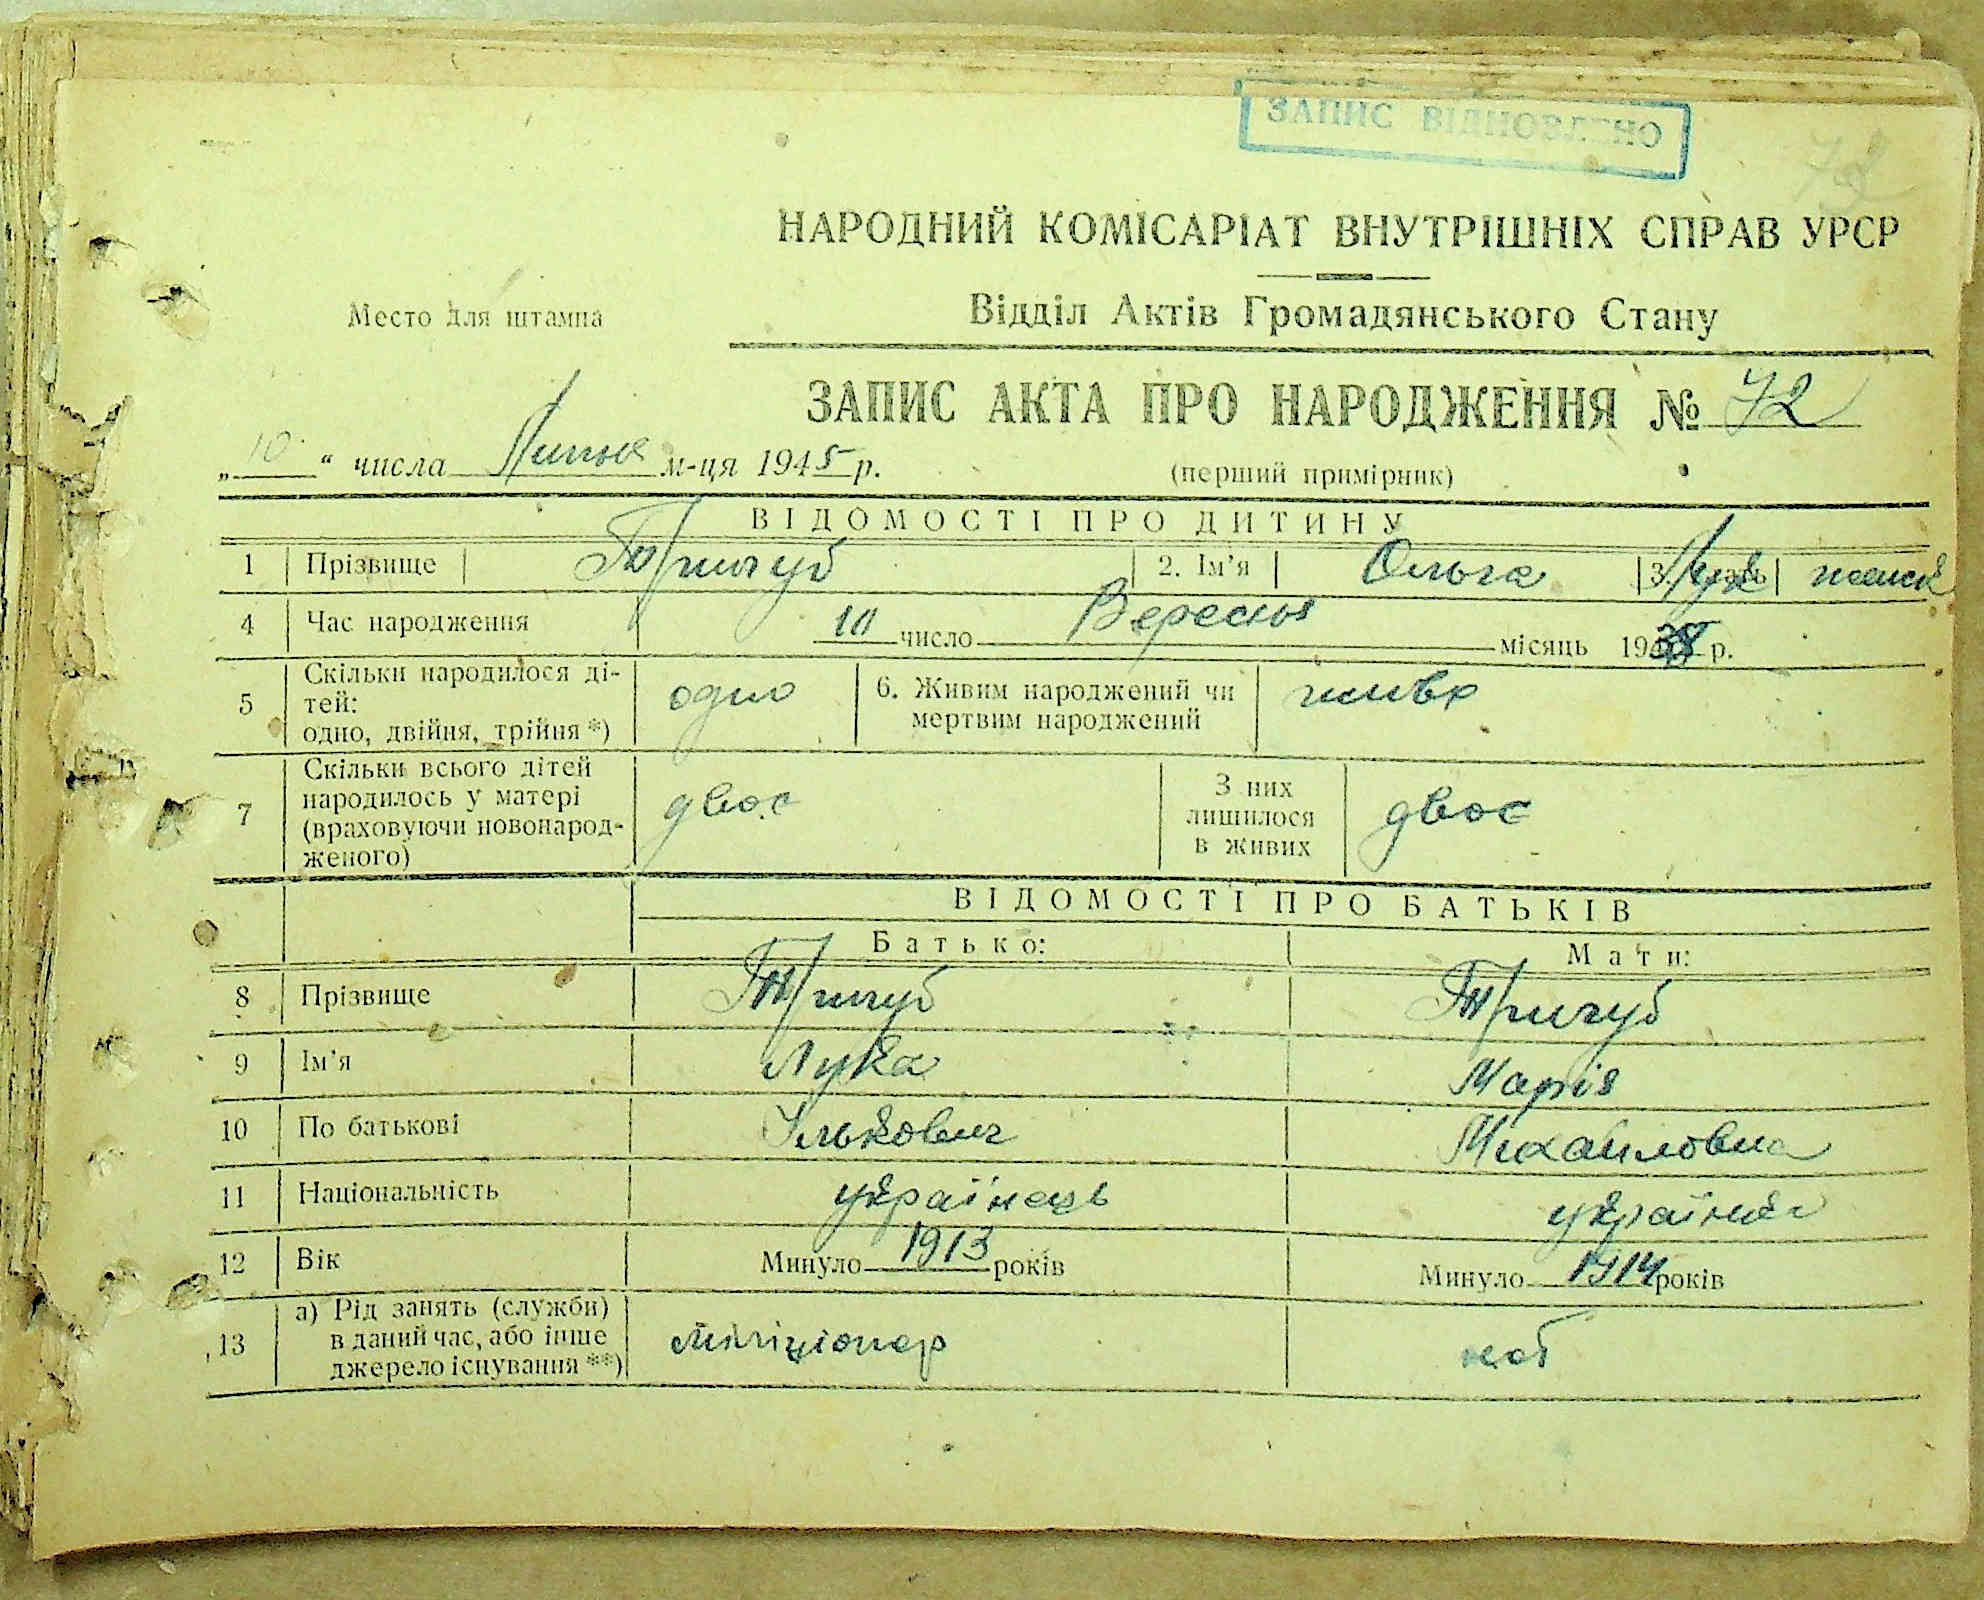 ЗАПИС ВІДНОВЛЕНО
72
НАРОДНИЙ КОМІСАРІАТ ВНУТРІШНІХ СПРАВ УРСР
Место для штампа
Відділ Актів Громадянського Стану
ЗАПИС АКТА ПРО НАРОДЖЕННЯ № 72
„ 10 “ числа Липня м-ця 1945 р.
(перший примірник)
ВІДОМОСТІ ПРО ДИТИНУ
1 Прізвище Тричуб 2. Ім'я Ольга Лук 3. Стать жінок
4 Час народження 10 число Вересня місяць 1938 р.
5 Скільки народилося ді-
тей:
одно, двійня, трійня *) одно 6. Живим народжений чи
мертвим народжений живе
7 Скільки всього дітей
народилось у матері
(враховуючи новонарод-
женого) двоє З них
лишилося
в живих двоє
ВІДОМОСТІ ПРО БАТЬКІВ
Батько: Мати:
8 Прізвище Тричуб Тричуб
9 Ім'я Лука Марія
10 По батькові Ількович Михайловна
11 Національність українець українка
12 Вік Минуло 1913 років Минуло 1914 років
13 а) Рід занять (служби)
в даний час, або інше
джерело існування **) міліціонер